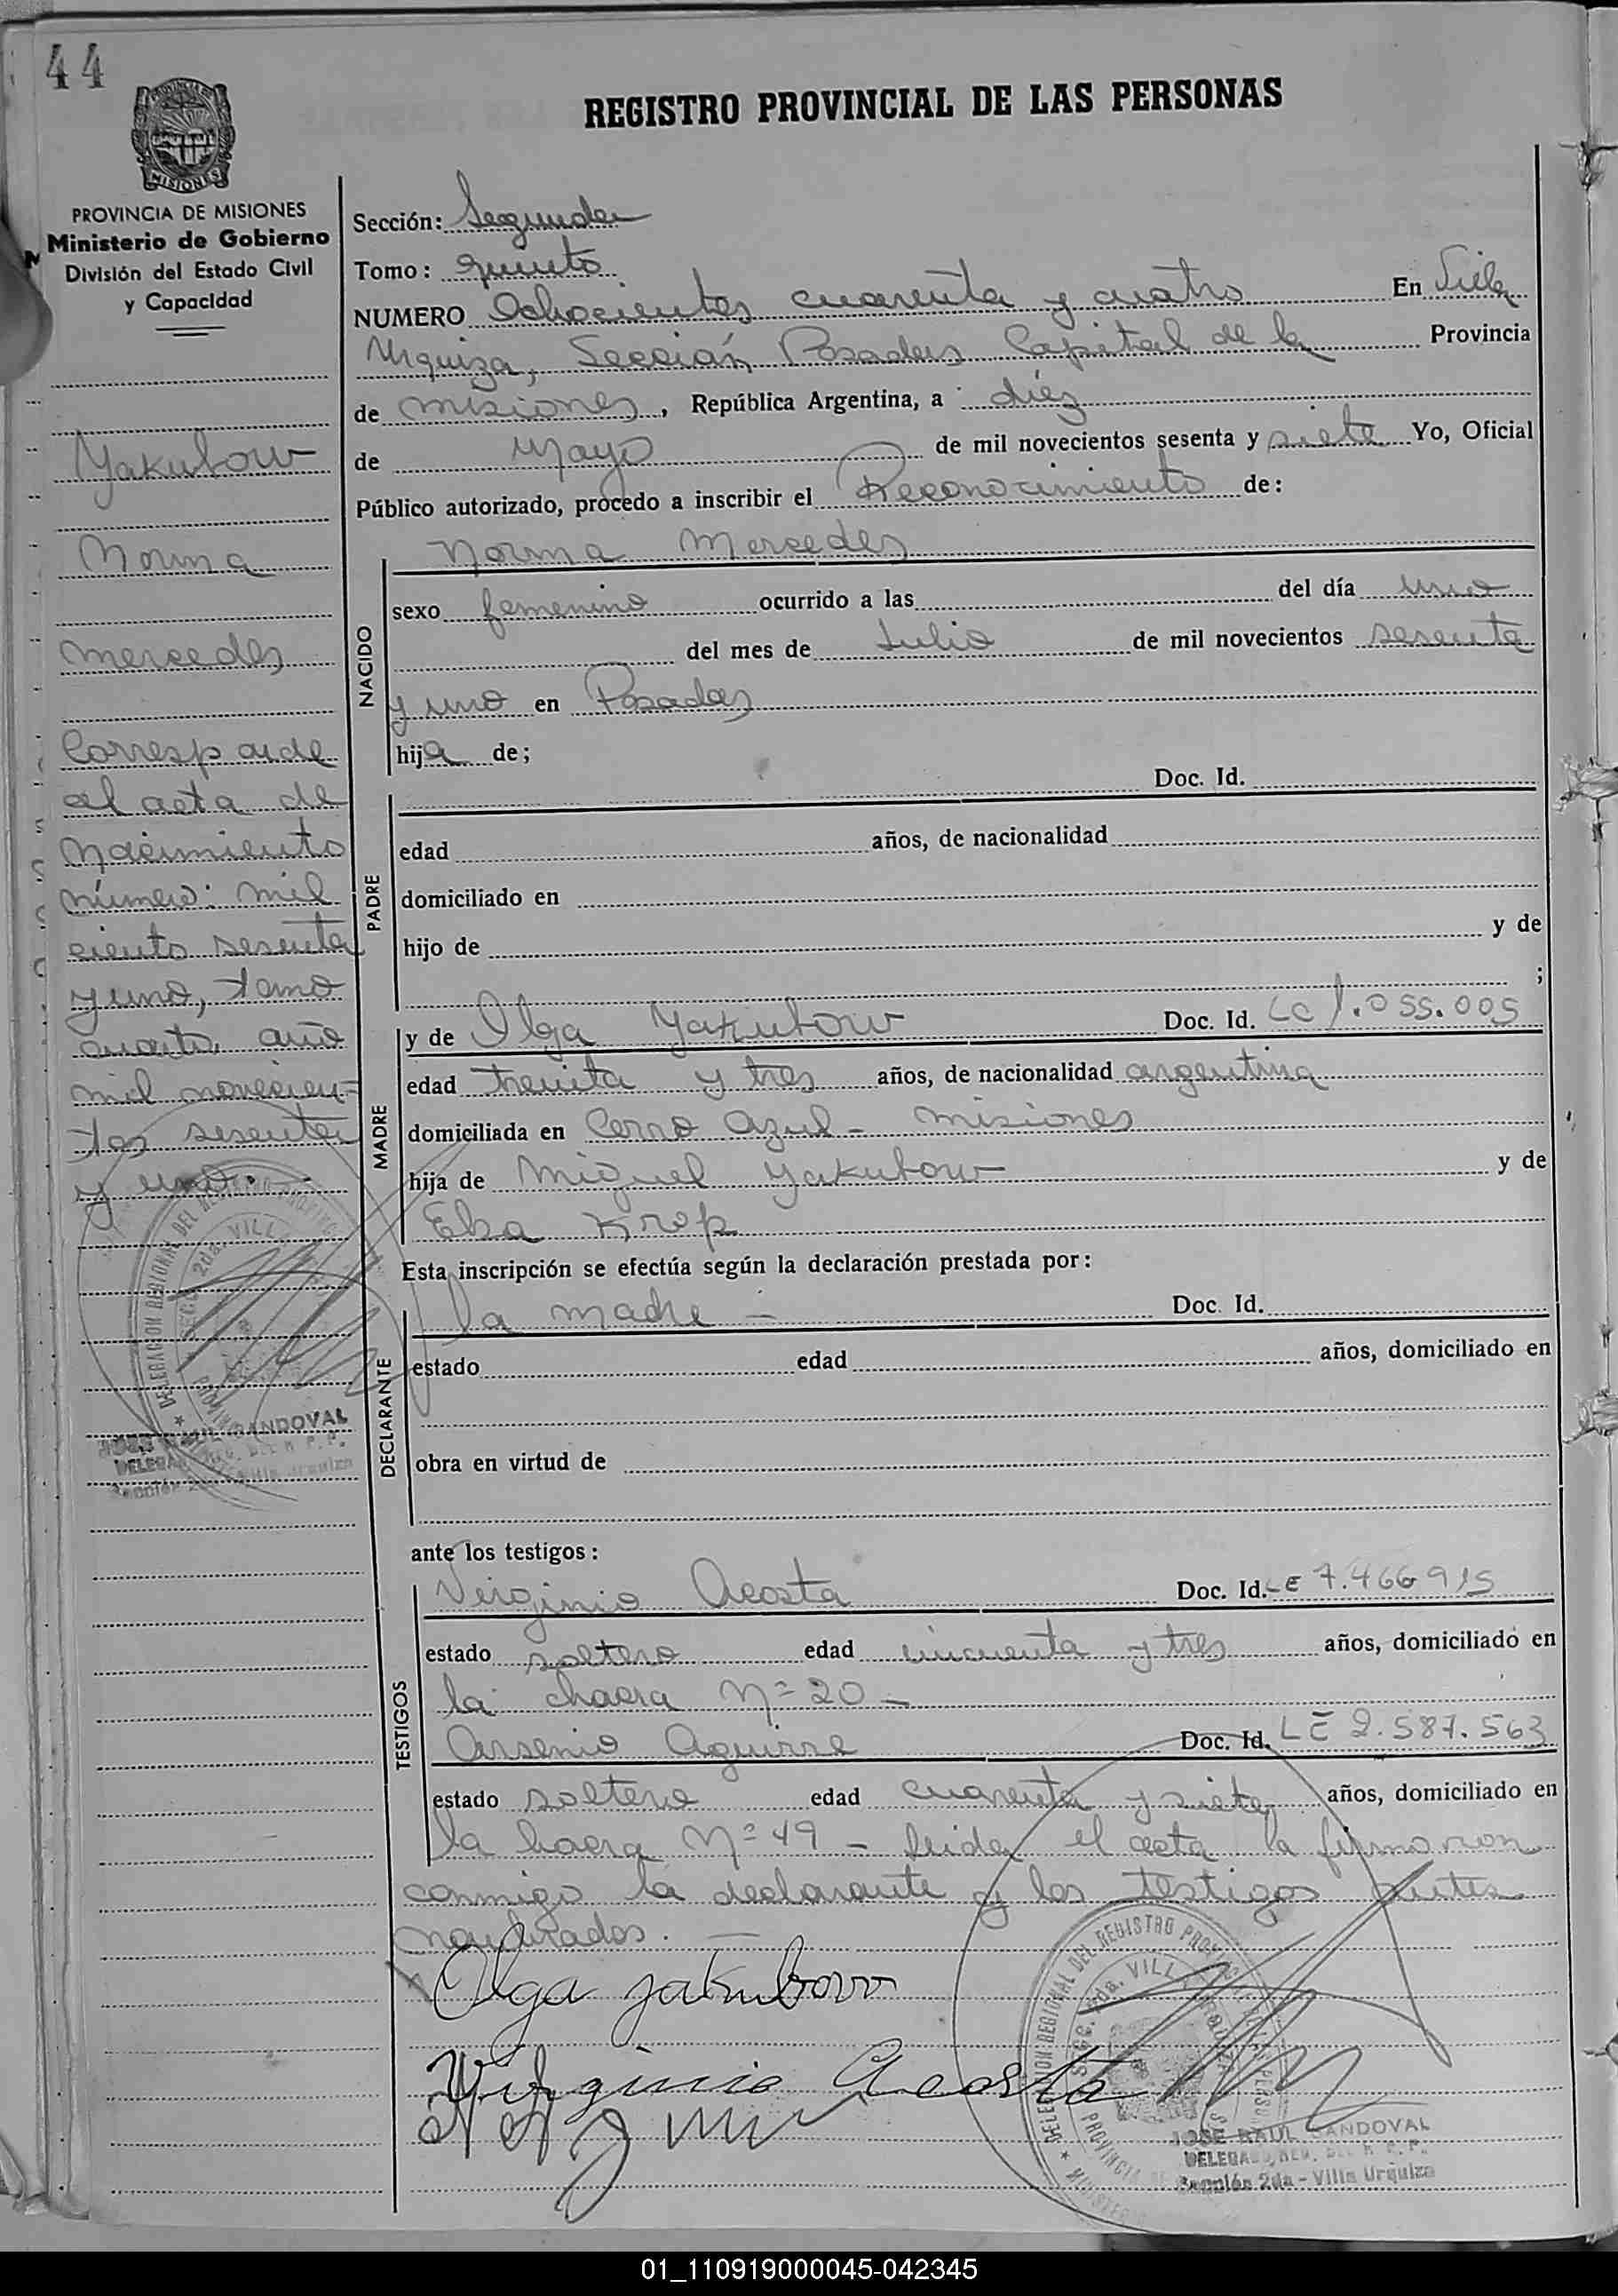 44
MISIONES
REGISTRO PROVINCIAL DE LAS PERSONAS
PROVINCIA DE MISIONES
Ministerio de Gobierno
División del Estado Civil
y Capacidad
Yakubow
Norma
Mercedes
Corresponde
al acta de
nacimiento
número: mil
ciento sesenta
y uno, tomo
cuarto, año
mil novecien=
tos sesenta
y uno.
DELEGACION REGIONAL DEL REGISTRO PROVINCIAL
SECC. 2da. VILLA
JOSE RAUL SANDOVAL
DELEGADO REG. DEL R. P. P.
Sección 2da - Villa Urquiza
Sección: Segunda
Tomo: quinto
NUMERO Ochocientos cuarenta y cuatro En Villa
Urquiza, Sección Posadas Capital de la Provincia
de Misiones, República Argentina, a diez
de Mayo de mil novecientos sesenta y siete Yo, Oficial
Público autorizado, procedo a inscribir el Reconocimiento de:
NACIDO
Norma Mercedes
sexo femenino ocurrido a las del día uno
del mes de Julio de mil novecientos sesenta
y uno en Posadas
hija de;
PADRE
Doc. Id.
edad años, de nacionalidad
domiciliado en
hijo de y de
;
MADRE
y de Olga Yakubow Doc. Id. LC 1.055.005
edad treinta y tres años, de nacionalidad argentina
domiciliada en Cerro Azul - Misiones
hija de Miguel Yakubow y de
Elsa Krop
Esta inscripción se efectúa según la declaración prestada por:
DECLARANTE
la madre - Doc. Id.
estado edad años, domiciliado en
obra en virtud de
ante los testigos:
TESTIGOS
Virginio Acosta Doc. Id. LE 7.466915
estado soltero edad cincuenta y tres años, domiciliado en
la chacra Nº 20 -
Arsenio Aguirre Doc. Id. LE 2.587.563
estado soltero edad cuarenta y siete años, domiciliado en
la hacra Nº 49 - leida el acta la firmaron
conmigo la declarante y los testigos antes
nombrados. -
Olga Jakubow
Virginio Acosta
DELEGACION REGIONAL DEL REGISTRO PROVINCIAL
SECC. 2da. VILLA URQUIZA
JOSE RAUL SANDOVAL
DELEGADO REG. DEL R. P. P.
Sección 2da - Villa Urquiza
01_110919000045-042345